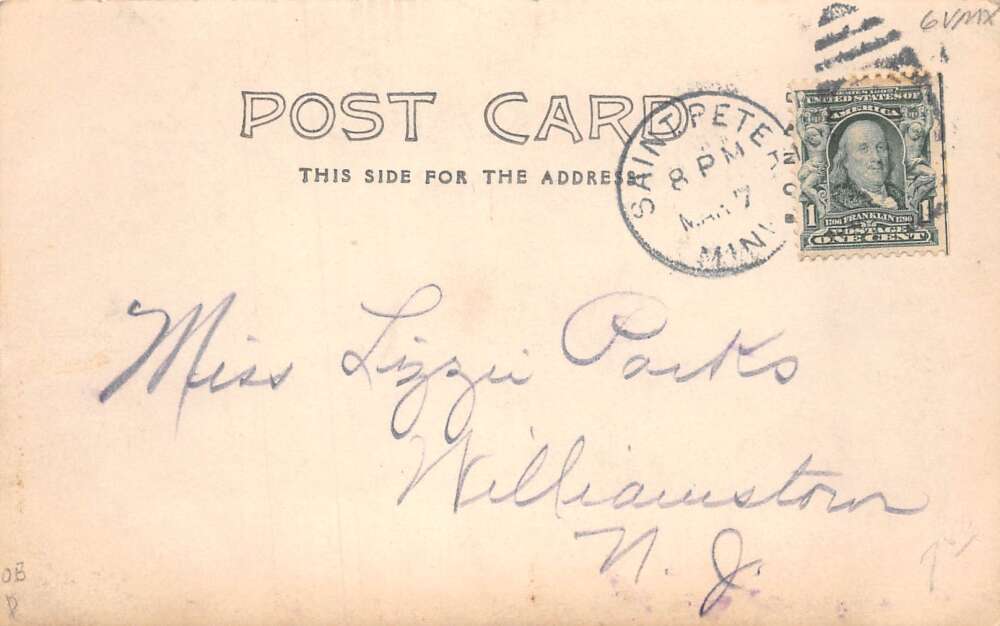 6VMX
POST CARD
THIS SIDE FOR THE ADDRESS
SAINT PETER
8 PM
MAR 7
MINN
SERIES 1902
UNITED STATES OF
AMERICA
1 1
1706 FRANKLIN 1790
POSTAGE
ONE CENT
Miss Lizzie Parks
Williamstown
N. J.
OB
P